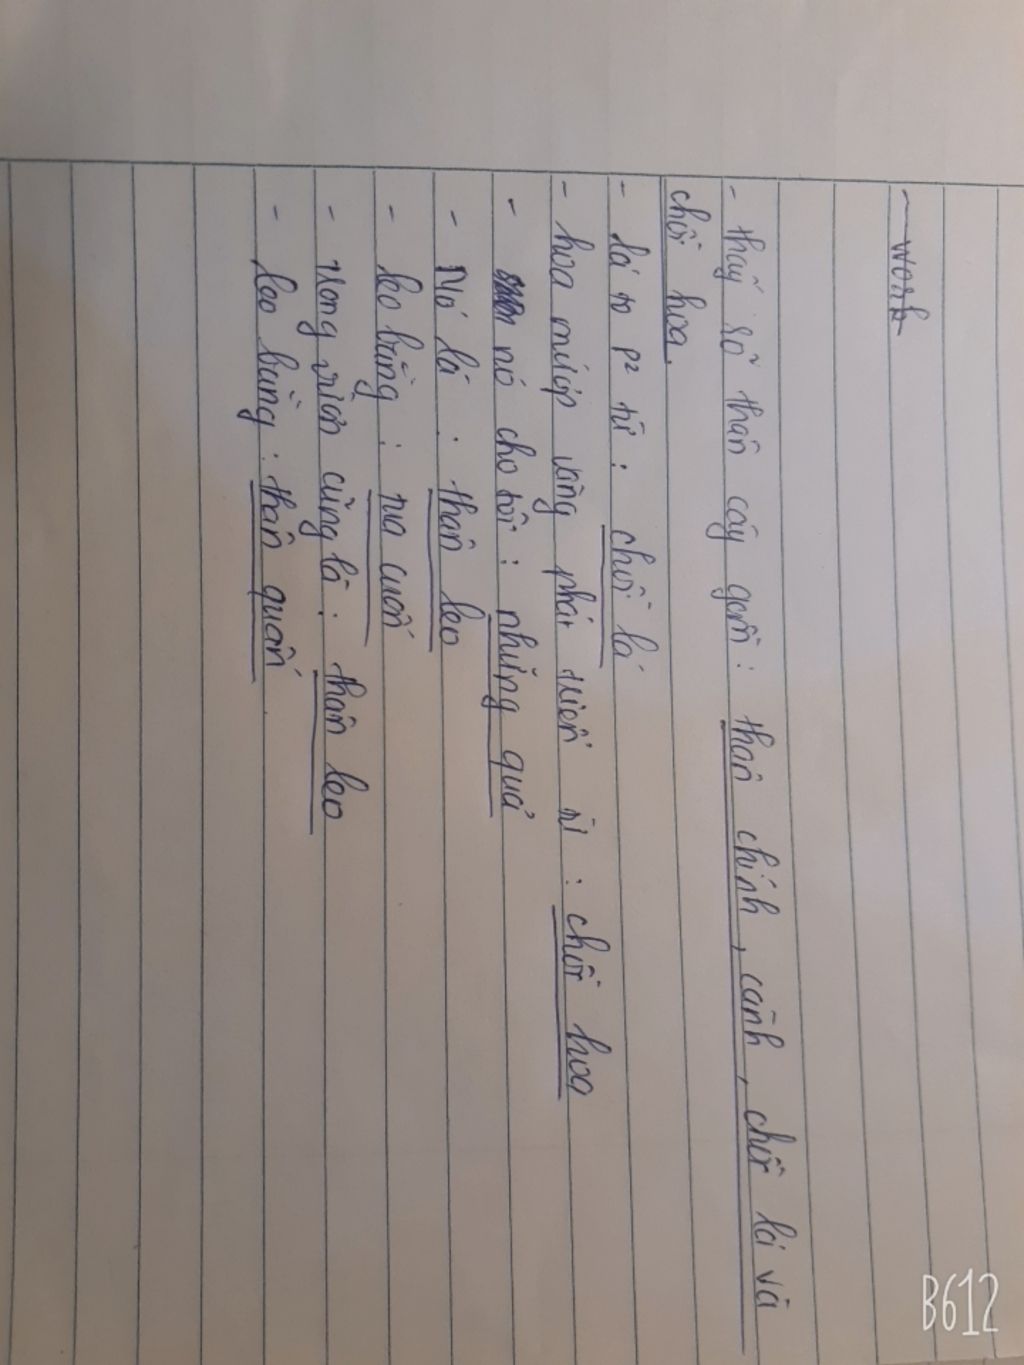 - work
- thấy rõ thân cây gồm : thân chính, cành, chồi lá và
chồi hoa.
- lá to p² từ : chồi lá
- hoa mướp vàng phát triển từ : chồi hoa
- nó cho tôi : những quả
- Nó là : thân leo
- leo bằng : tua cuốn
- trong vườn cũng là : thân leo
- leo bằng : thân quấn.
B612